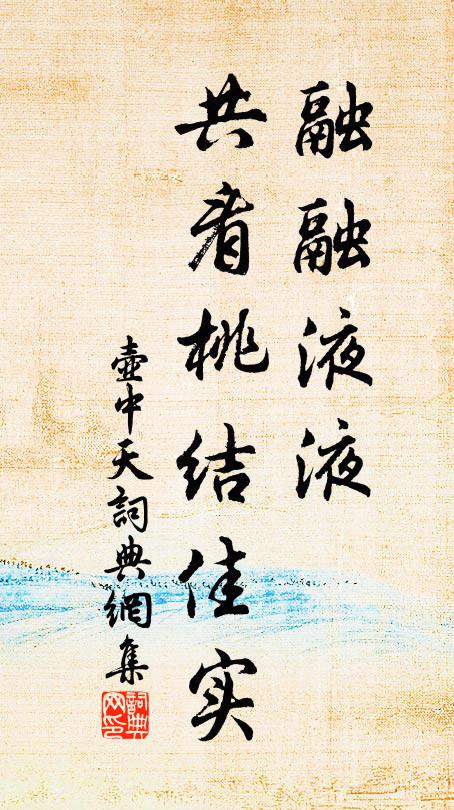 融融液液
共看桃结佳实
壶中天詞典網集
詞典
网印